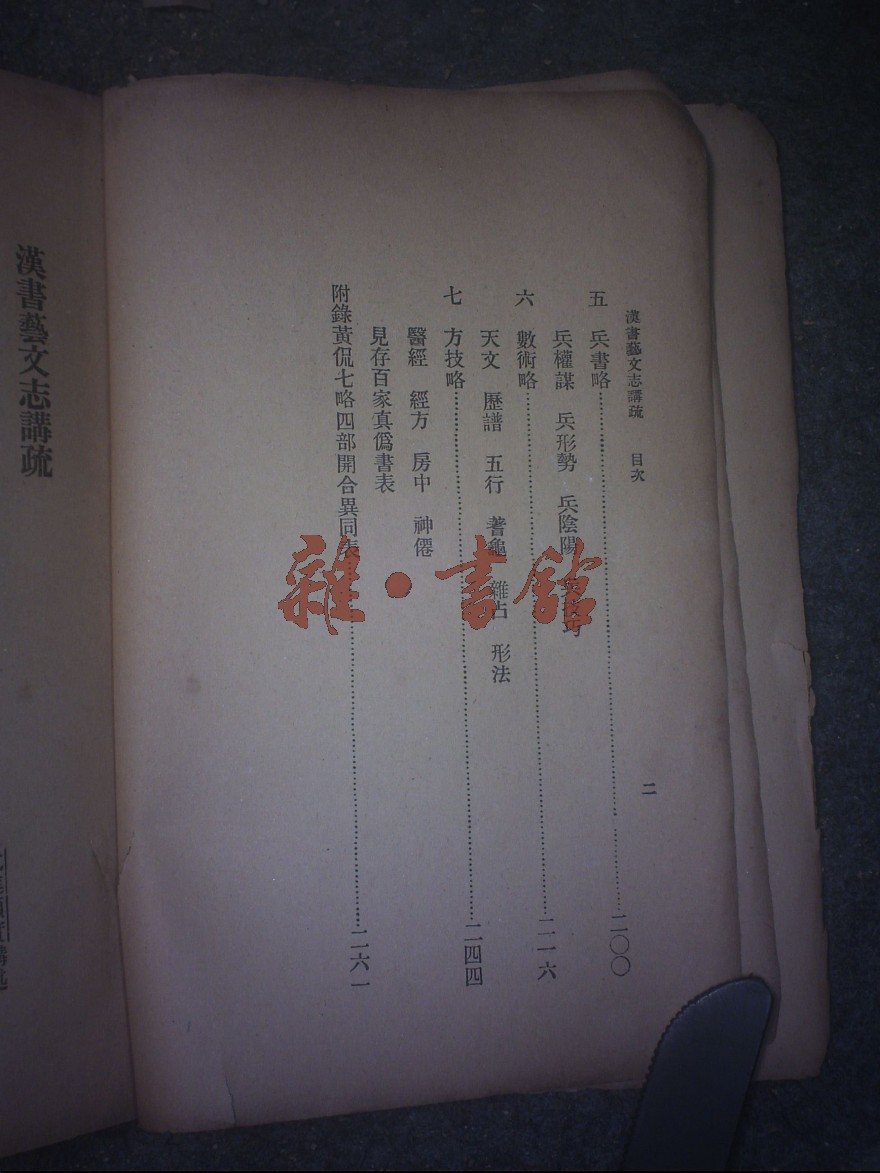 漢書藝文志講疏　目次
二
五　兵書略……二〇〇
兵權謀　兵形勢　兵陰陽　兵技巧
六　數術略……二一六
天文　歷譜　五行　蓍龜　雜占　形法
七　方技略……二四四
醫經　經方　房中　神僊
見存百家真僞書表
附錄黃侃七略四部開合異同表……二六一
漢書藝文志講疏
雜·書館